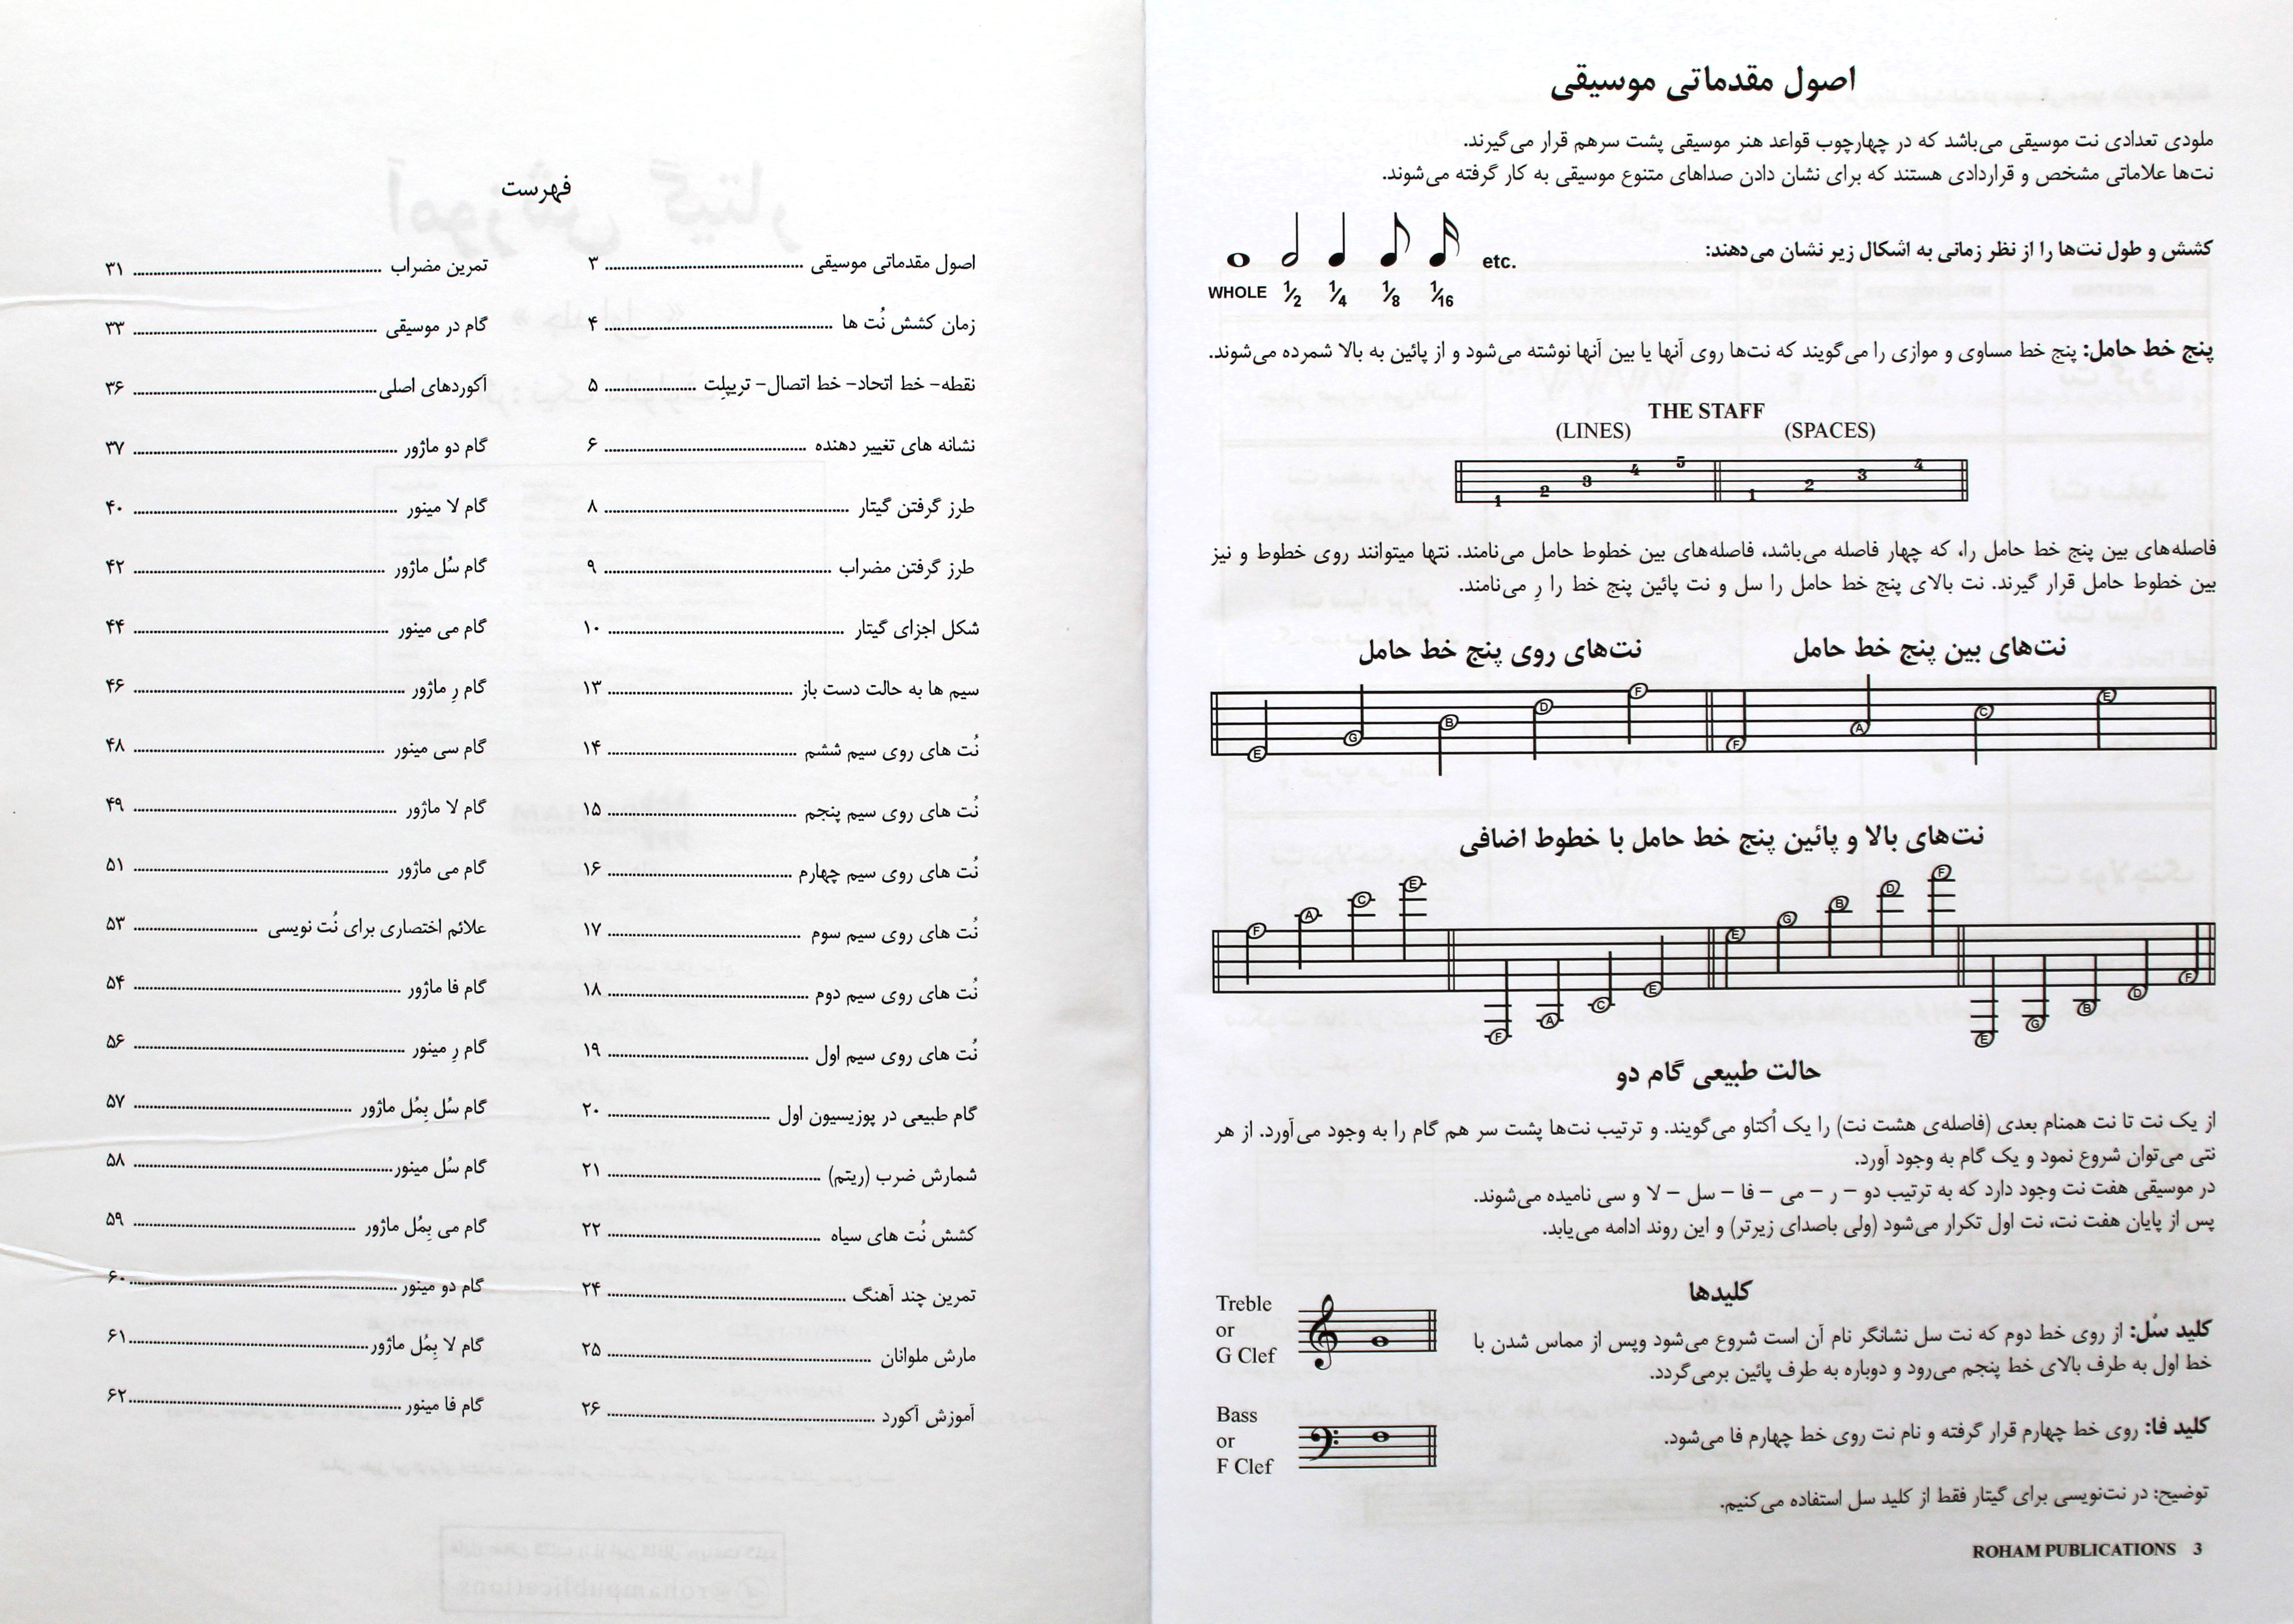 فهرست
اصول مقدماتی موسیقی ۳
زمان کشش نُت ها ۴
نقطه- خط اتحاد- خط اتصال- تریپلِت ۵
نشانه های تغییر دهنده ۶
طرز گرفتن گیتار ۸
طرز گرفتن مضراب ۹
شکل اجزای گیتار ۱۰
سیم ها به حالت دست باز ۱۳
نُت های روی سیم ششم ۱۴
نُت های روی سیم پنجم ۱۵
نُت های روی سیم چهارم ۱۶
نُت های روی سیم سوم ۱۷
نُت های روی سیم دوم ۱۸
نُت های روی سیم اول ۱۹
گام طبیعی در پوزیسیون اول ۲۰
شمارش ضرب (ریتم) ۲۱
کشش نُت های سیاه ۲۲
تمرین چند آهنگ ۲۴
مارش ملوانان ۲۵
آموزش آکورد ۲۶
تمرین مضراب ۳۱
گام در موسیقی ۳۳
آکوردهای اصلی ۳۶
گام دو ماژور ۳۷
گام لا مینور ۴۰
گام سُل ماژور ۴۲
گام می مینور ۴۴
گام رِ ماژور ۴۶
گام سی مینور ۴۸
گام لا ماژور ۴۹
گام می ماژور ۵۱
علائم اختصاری برای نُت نویسی ۵۳
گام فا ماژور ۵۴
گام رِ مینور ۵۶
گام سُل بِمُل ماژور ۵۷
گام سُل مینور ۵۸
گام می بِمُل ماژور ۵۹
گام دو مینور ۶۰
گام لا بِمُل ماژور ۶۱
گام فا مینور ۶۲
اصول مقدماتی موسیقی
ملودی تعدادی نت موسیقی می‌باشد که در چهارچوب قواعد هنر موسیقی پشت سرهم قرار می‌گیرند.
نت‌ها علاماتی مشخص و قراردادی هستند که برای نشان دادن صداهای متنوع موسیقی به کار گرفته می‌شوند.
کشش و طول نت‌ها را از نظر زمانی به اشکال زیر نشان می‌دهند:
etc.
WHOLE 1/2 1/4 1/8 1/16
پنج خط حامل: پنج خط مساوی و موازی را می‌گویند که نت‌ها روی آنها یا بین آنها نوشته می‌شود و از پائین به بالا شمرده می‌شوند.
THE STAFF
(LINES) (SPACES)
1 2 3 4 5 1 2 3 4
فاصله‌های بین پنج خط حامل را، که چهار فاصله می‌باشد، فاصله‌های بین خطوط حامل می‌نامند. نتها میتوانند روی خطوط و نیز
بین خطوط حامل قرار گیرند. نت بالای پنج خط حامل را سل و نت پائین پنج خط را رِ می‌نامند.
نت‌های بین پنج خط حامل
نت‌های روی پنج خط حامل
E G B D F F A C E
نت‌های بالا و پائین پنج خط حامل با خطوط اضافی
F A C E F A C E E G B D F E G B D F
حالت طبیعی گام دو
از یک نت تا نت همنام بعدی (فاصله‌ی هشت نت) را یک اُکتاو می‌گویند. و ترتیب نت‌ها پشت سر هم گام را به وجود می‌آورد. از هر
نتی می‌توان شروع نمود و یک گام به وجود آورد.
در موسیقی هفت نت وجود دارد که به ترتیب دو – ر – می – فا – سل – لا و سی نامیده می‌شوند.
پس از پایان هفت نت، نت اول تکرار می‌شود (ولی باصدای زیرتر) و این روند ادامه می‌یابد.
کلیدها
کلید سُل: از روی خط دوم که نت سل نشانگر نام آن است شروع می‌شود وپس از مماس شدن با
خط اول به طرف بالای خط پنجم می‌رود و دوباره به طرف پائین برمی‌گردد.
Treble
or
G Clef
کلید فا: روی خط چهارم قرار گرفته و نام نت روی خط چهارم فا می‌شود.
Bass
or
F Clef
توضیح: در نت‌نویسی برای گیتار فقط از کلید سل استفاده می‌کنیم.
ROHAM PUBLICATIONS 3